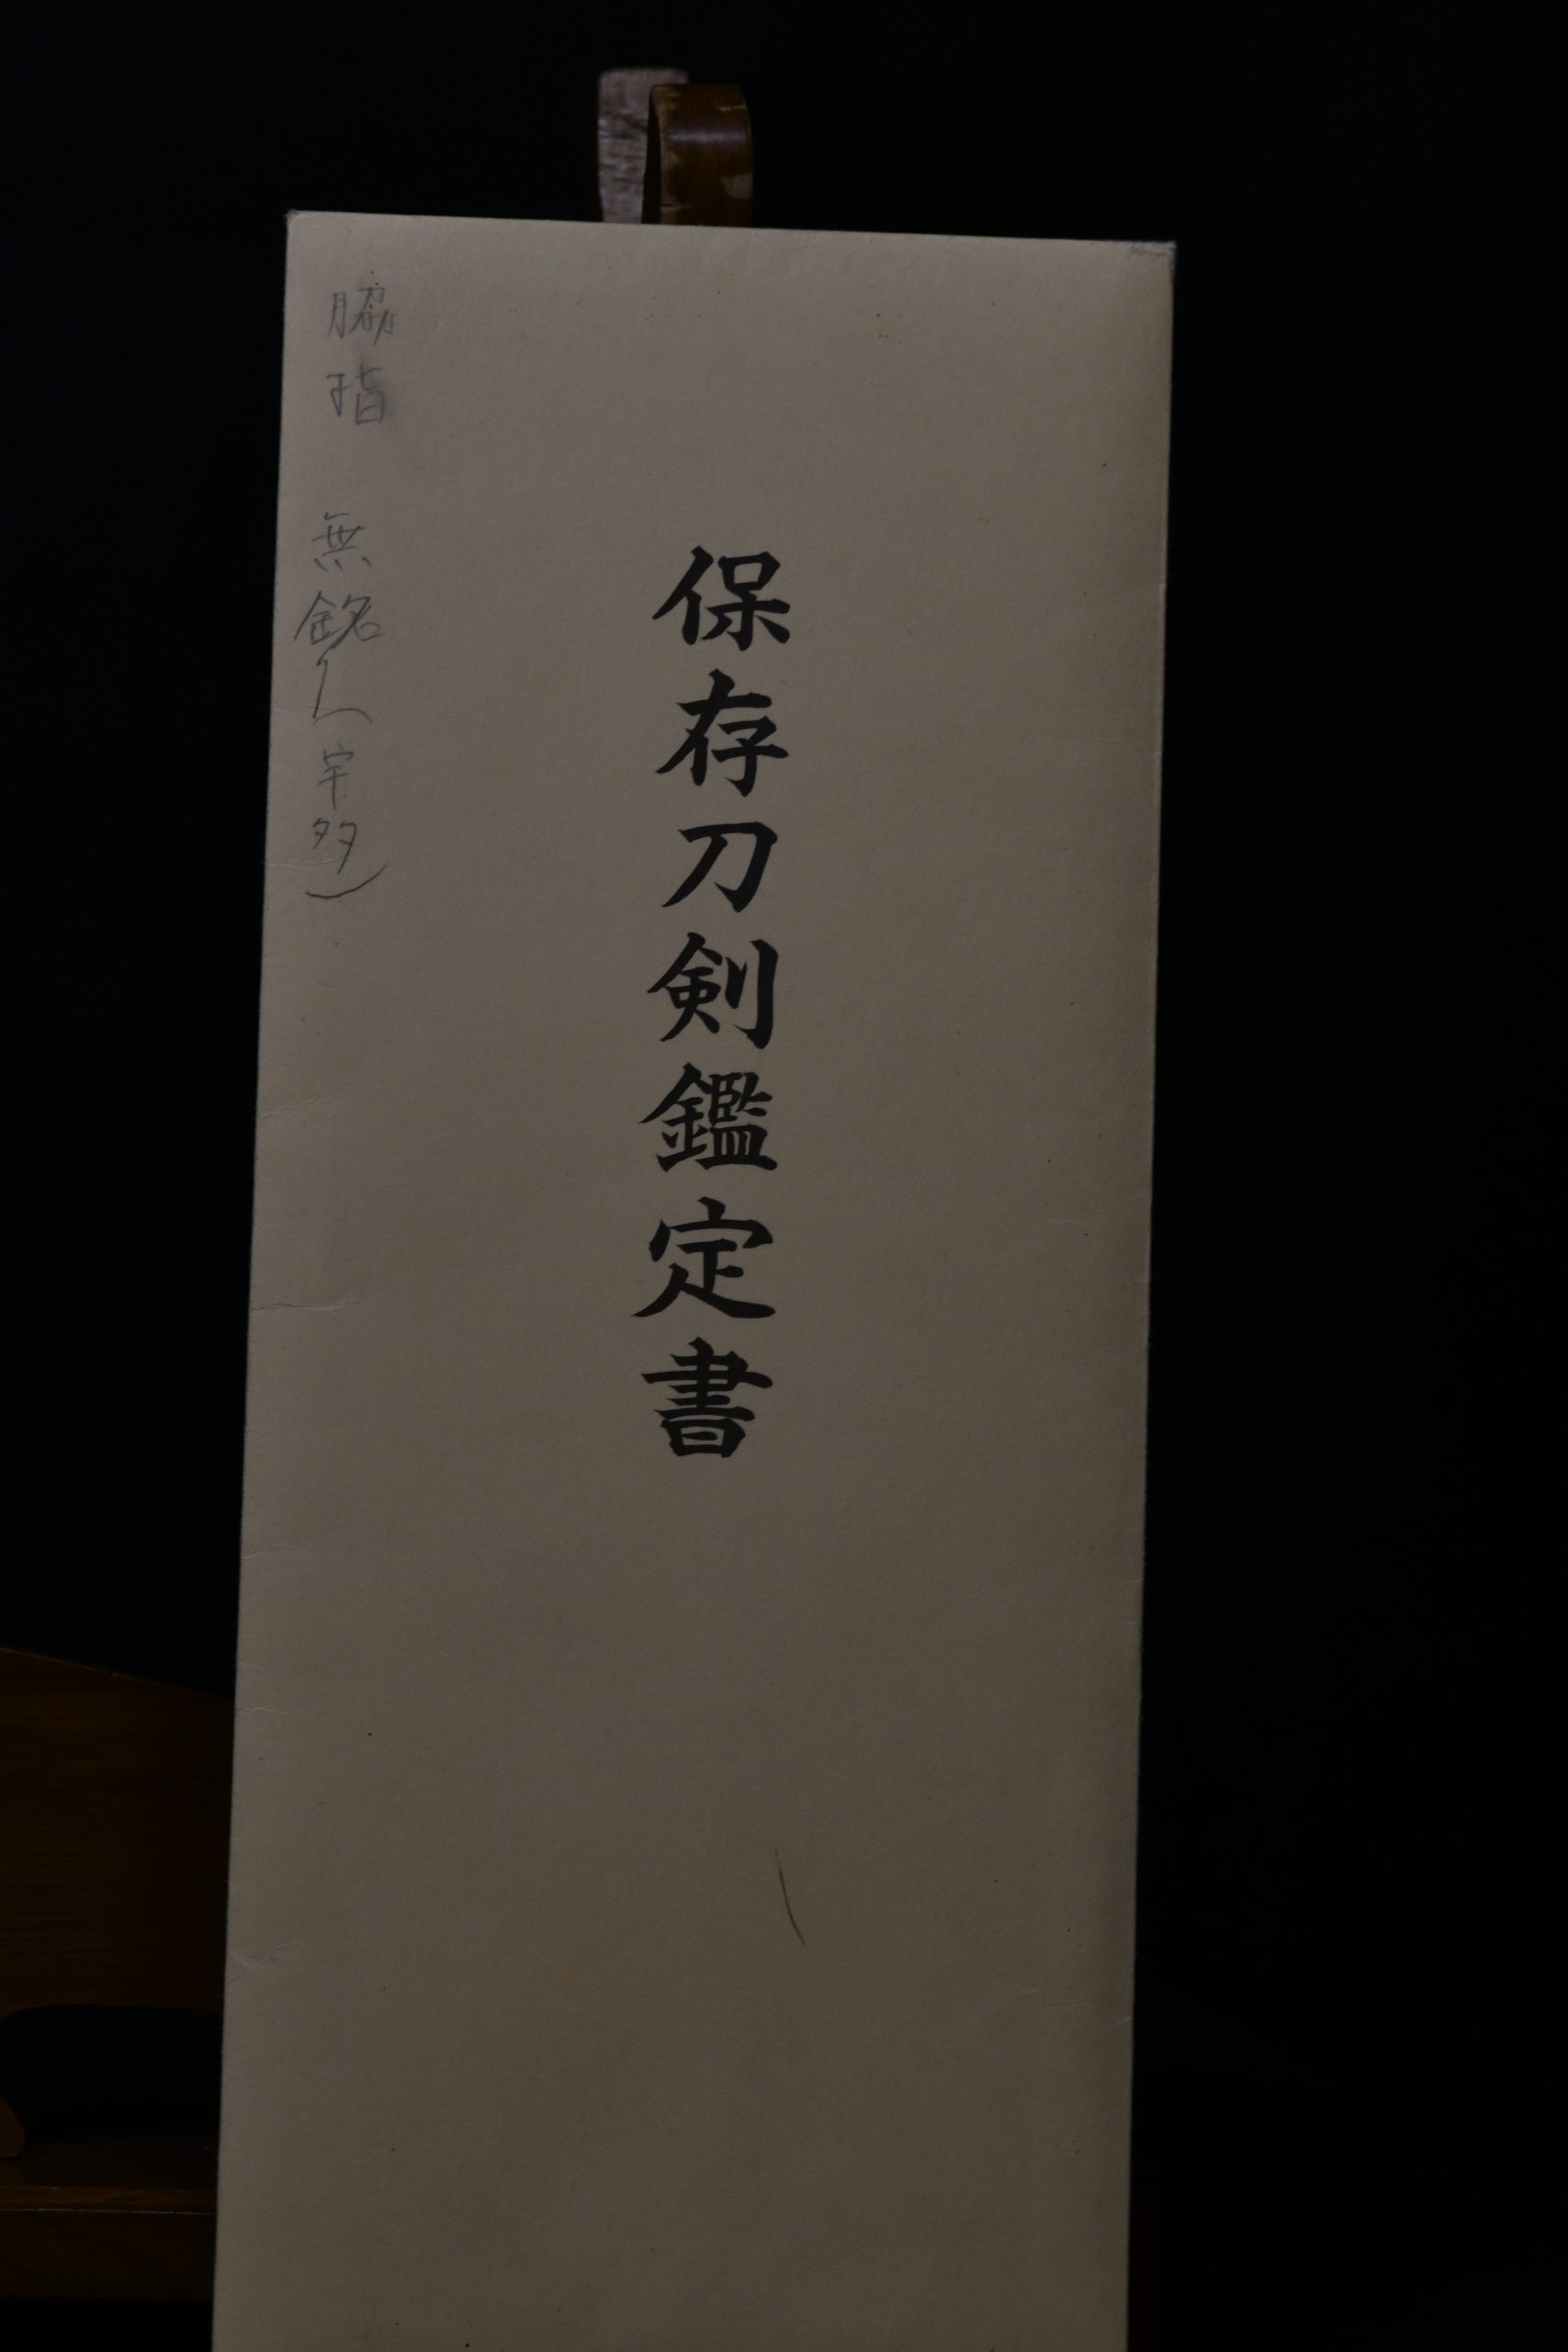 保存刀剣鑑定書
脇指 無銘(宇多)